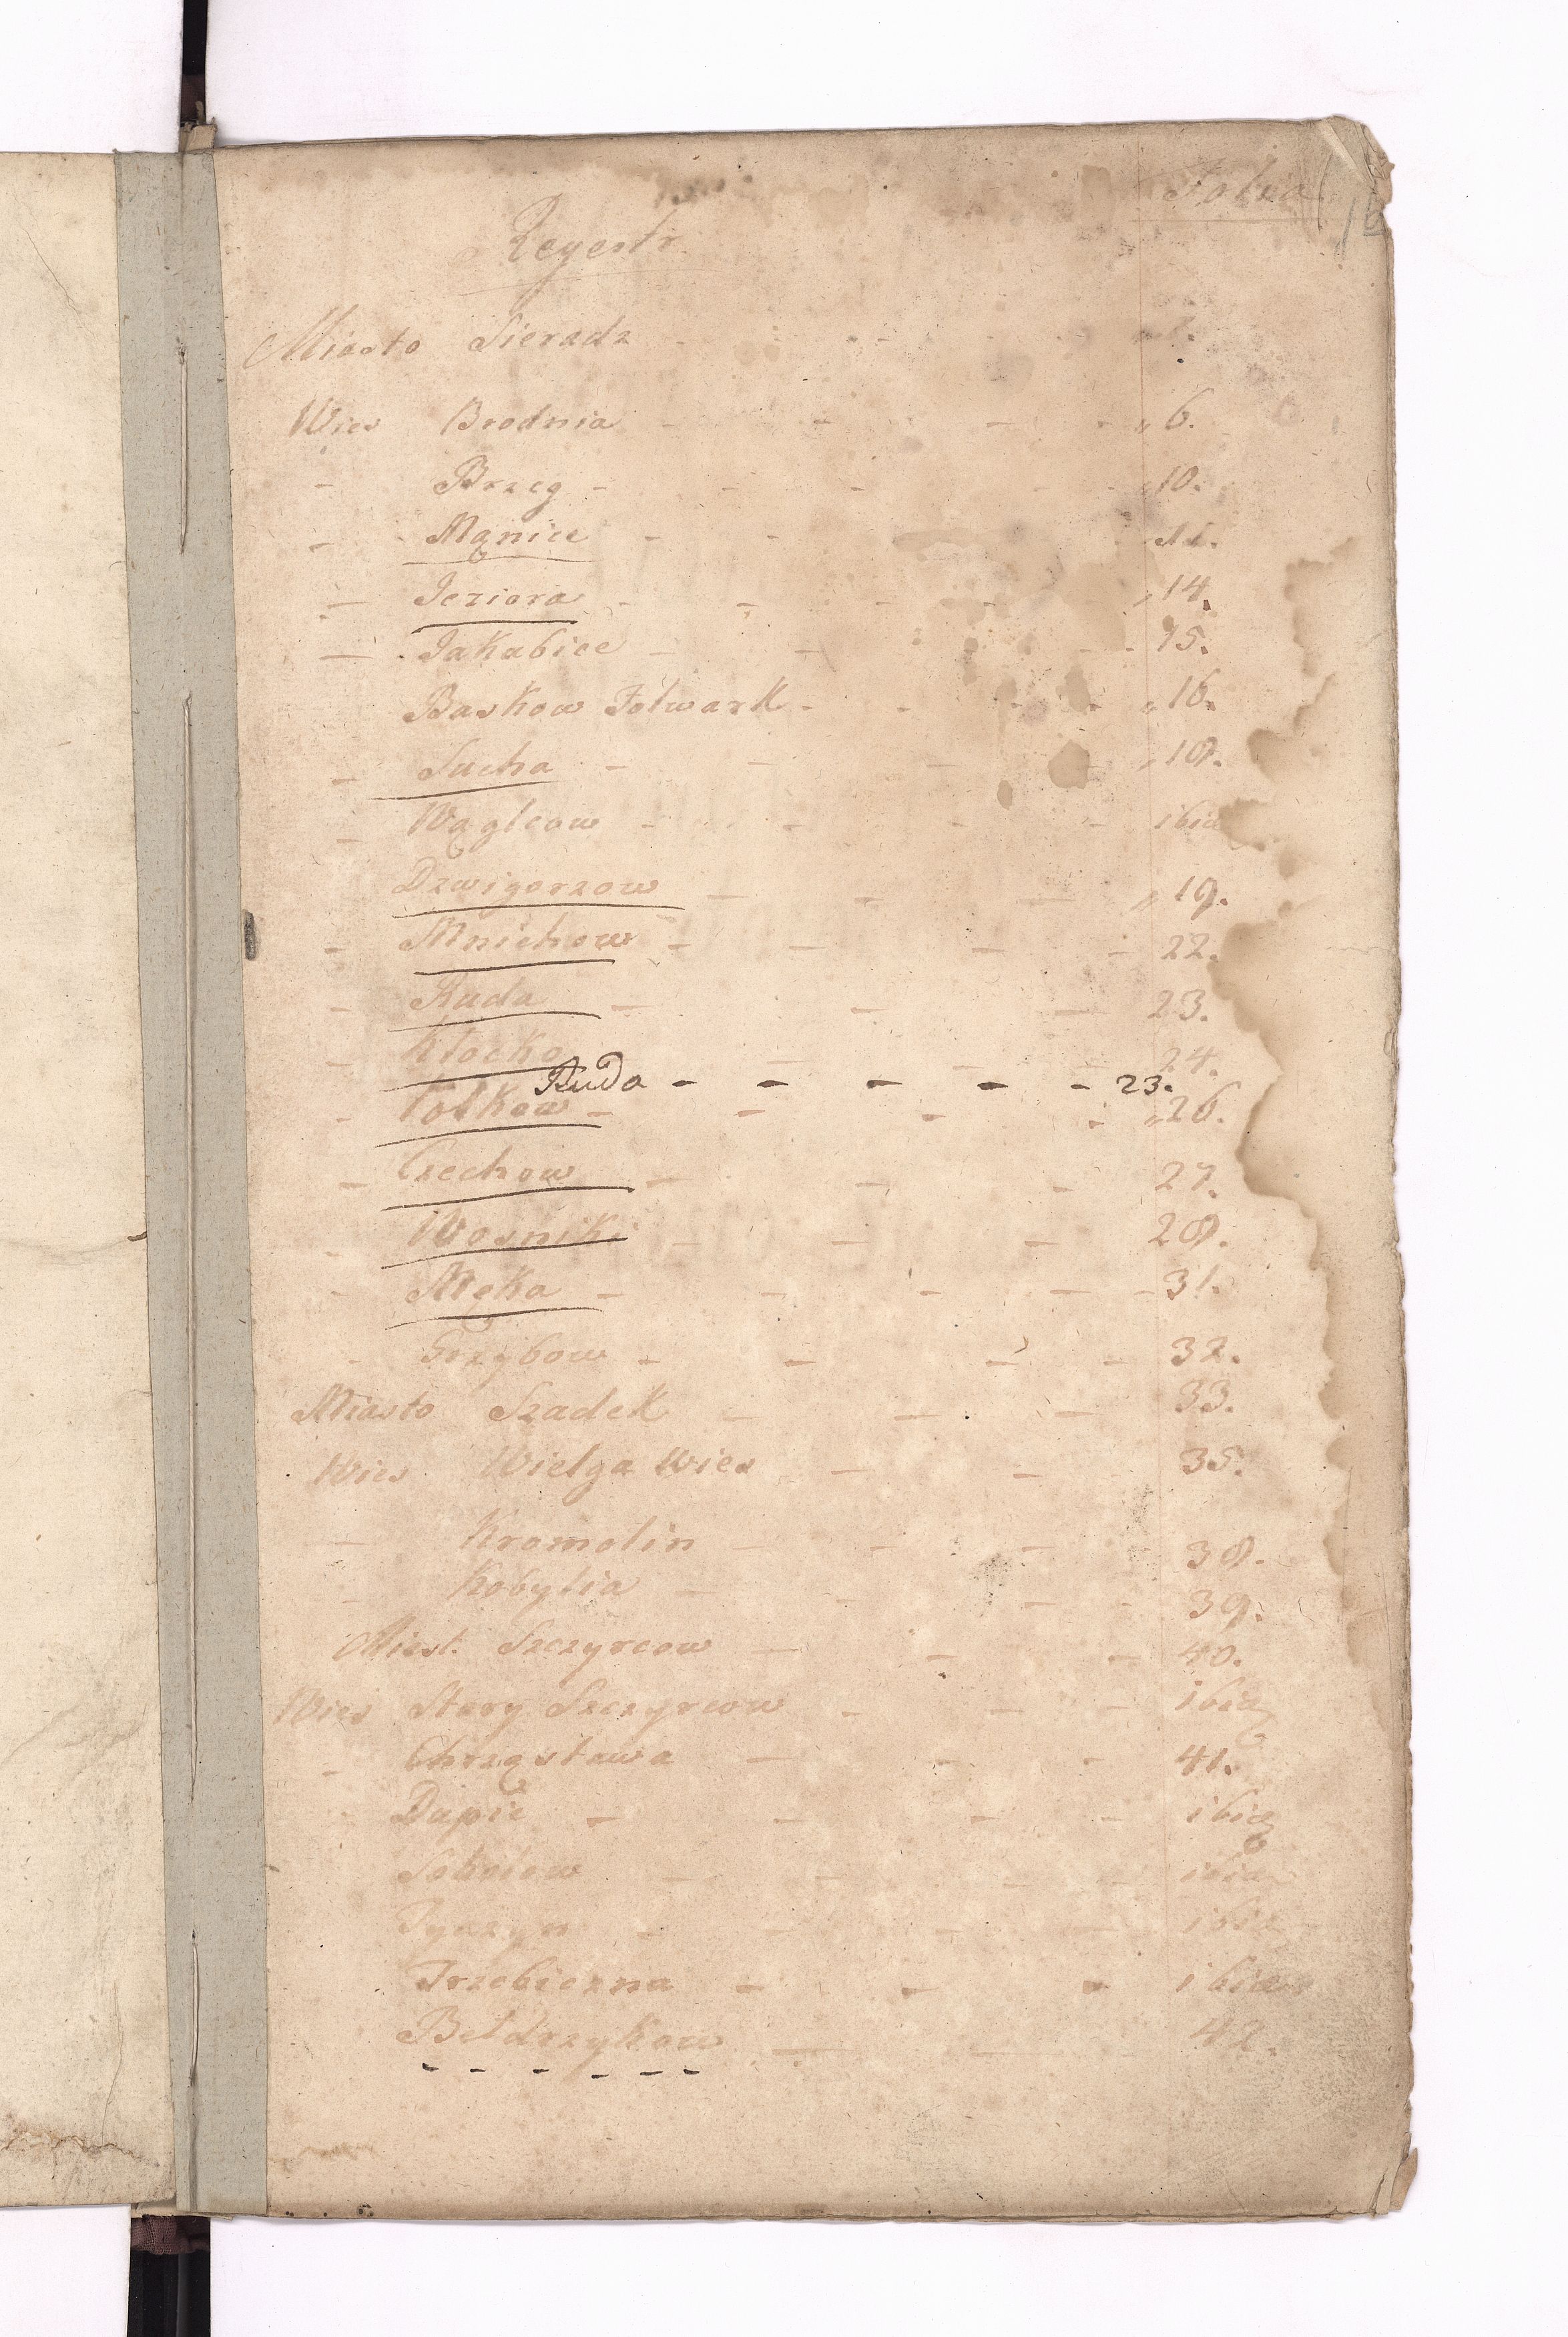 Folia
Regestr
Miasto Sieradz - - - 1.
Wies Brodnia - - - - „ 6.
- Brzeg - - - - - „ 10.
- Mąnice - - - 11.
- Jeziora - - - - - „ 14.
- Jakubice - - - - 15.
Baskow Folwark - - - - „ 16.
- Sucha - - - - „ 18.
- Wągleow - - - - ibid
Dzwigorzow - - - „ 19.
- Mnichow - - - - 22.
- Ruda - - - 23.
- Kłocko - - 24.
Ruda - - - - - 23.
- - - - - „ 26.
- Czechow - - - 27.
- Wosniki - - - 28.
- Męka - - - - - 31.
- Grzybow - - - - 32.
Miasto Szadek - - - 33.
Wies Wielga Wies - - 35.
- Kromolin - - - 38.
- Kobylia - - - - 39.
Miast. Szczyrcow - - - 40.
Wies Stary Szczyrcow - - - ibid
- Chrząstawa - - - 41.
Dupie - - - - ibid
- - - - ibid
- - - - ibid
Trzebiczna - - - ibid
Bełdrzykow - - 42.
- - - - - -